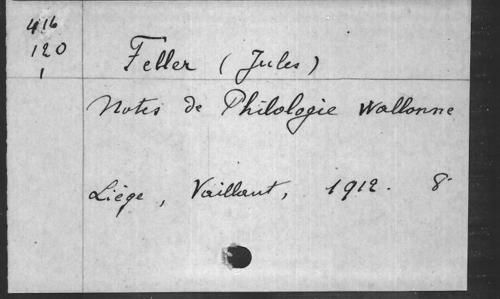 416
120
1
Feller (Jules)
Notes de Philologie Wallonne
Liège, Vaillant, 1912. 8°